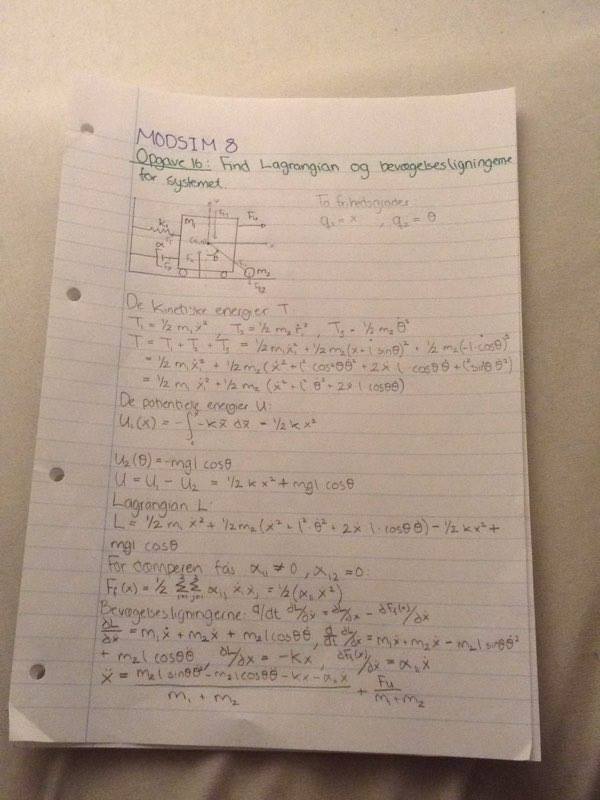 MODSIM 8
Opgave 16: Find Lagrangian og bevægelsesligningerne
for systemet.
To frihedsgrader
q₁ = x , q₂ = θ
m₁
m₂
De kinetiske energier T
T₁ = 1/2 m₁ ẋ² , T₂ = 1/2 m₂ ṙ² , T₃ = 1/2 m₂ θ̇²
T = T₁ + T₂ + T₃ = 1/2 m₁ẋ² + 1/2 m₂(x + l sinθ)² + 1/2 m₂(-l cosθ)²
= 1/2 m₁ ẋ² + 1/2 m₂ (ẋ² + l² cos²θθ̇² + 2ẋ l cosθθ̇ + l² sin²θθ̇²)
= 1/2 m₁ ẋ² + 1/2 m₂ (ẋ² + l² θ̇² + 2ẋ l cosθθ̇)
De potentielle energier U:
U₁(x) = -∫ -kx̃ dx̃ = 1/2 kx²
U₂(θ) = -mgl cosθ
U = U₁ - U₂ = 1/2 kx² + mgl cosθ
Lagrangian L:
L = 1/2 m₁ ẋ² + 1/2 m₂ (ẋ² + l² · θ̇² + 2ẋ l · cosθ θ̇) - 1/2 kx² +
mgl cosθ
For dæmperen fås α₁₁ ≠ 0 , α₁₂ = 0:
= 1/2 (α₁₁ ẋ²)
Bevægelsesligningerne: d/dt ∂L/∂ẋ = ∂L/∂x - ∂Ff(x)/∂ẋ
∂L/∂ẋ = m₁ẋ + m₂ẋ + m₂l cosθθ̇, d/dt ∂L/∂ẋ = m₁ẍ + m₂ẍ - m₂l sinθθ̇²
+ m₂l cosθθ̈ , ∂L/∂x = -kx , ∂Ff(x)/∂ẋ = α₁₁ẋ
ẍ = (m₂l sinθθ̇² - m₂l cosθθ̈ - kx - α₁₁ẋ)/(m₁ + m₂) + Fu/(m₁ + m₂)